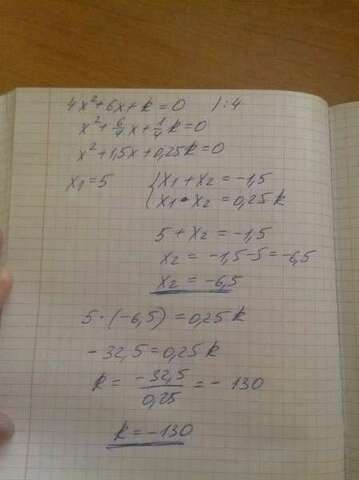 4x²+6x+k=0 |:4
x²+6/4x+1/4k=0
x²+1,5x+0,25k=0
x₁=5 {x₁+x₂=-1,5
x₁•x₂=0,25k
5+x₂=-1,5
x₂=-1,5-5=-6,5
x₂=-6,5
5·(-6,5)=0,25k
-32,5=0,25k
k=-32,5/0,25=-130
k=-130